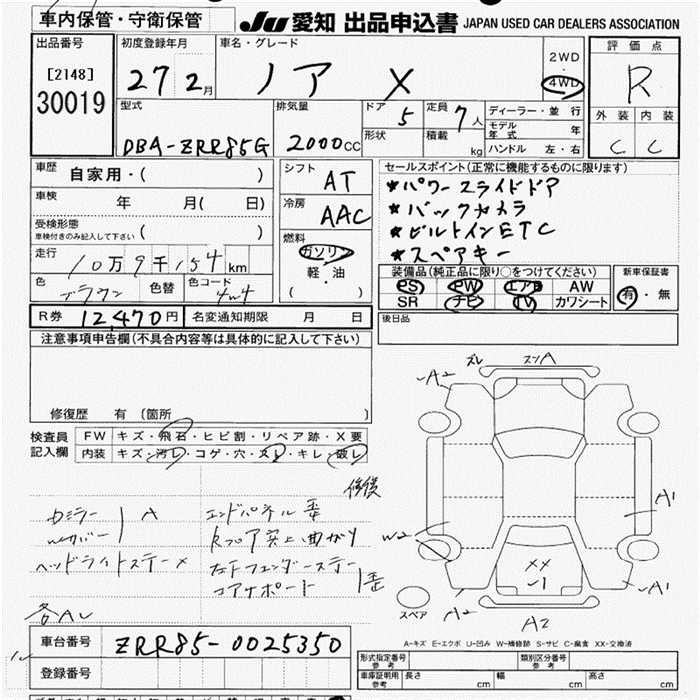 車内保管・守衛保管
JU 愛知 出品申込書 JAPAN USED CAR DEALERS ASSOCIATION
出品番号
[2148]
30019
初度登録年月
27 2月
車名・グレード
ノア X
2WD
・
4WD
評価点
R
外装 内装
C C
型式
DBA-ZRR85G
排気量
2000cc
ドア
5
形状
定員
7人
積載
kg
ディーラー・並行
モデル年式 年
ハンドル 左・右
車歴
自家用・( )
車検
年 月( 日)
受検形態
車検付きのみ記入して下さい ( )
走行
10万9千154km
色
ブラウン
色替
色コード
4W4
シフト
AT
冷房
AAC
燃料
ガソリン
軽・油
( )
セールスポイント(正常に機能するものに限ります)
★パワースライドドア
★バックカメラ
★ビルトインETC
★スペアキー
装備品(純正品に限り○をつけてください)
PS PW エアB AW
SR ナビ TV カワシート
新車保証書
有・無
R券 12,470円
名変通知期限 月 日
後日品
注意事項申告欄(不具合内容等は具体的に記入して下さい)
修復歴 有 (箇所 )
検査員記入欄
FW キズ・飛石・ヒビ割・リペア跡・X要
内装 キズ・汚レ・コゲ・穴・スレ・キレ・破レ
修後
エンドパネル
曲がり
ヘッドライトステー
コアサポート
A
ズレ
A
A2
A1
W2
XX
A1
A2
A2
スペア
A-キズ E-エクボ U-凹み W-補修跡 S-サビ C-腐食 XX-交換済
車台番号
ZRR85-0025350
登録番号
形式指定番号
参考
類別区分番号
参考
車庫証明用
参考
長さ cm
幅 cm
高さ cm